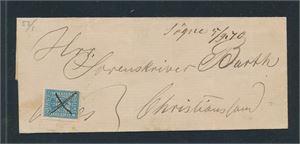 Søgne 5/9 70.
Hrr.
Sorenskriver Barth
Christianssand